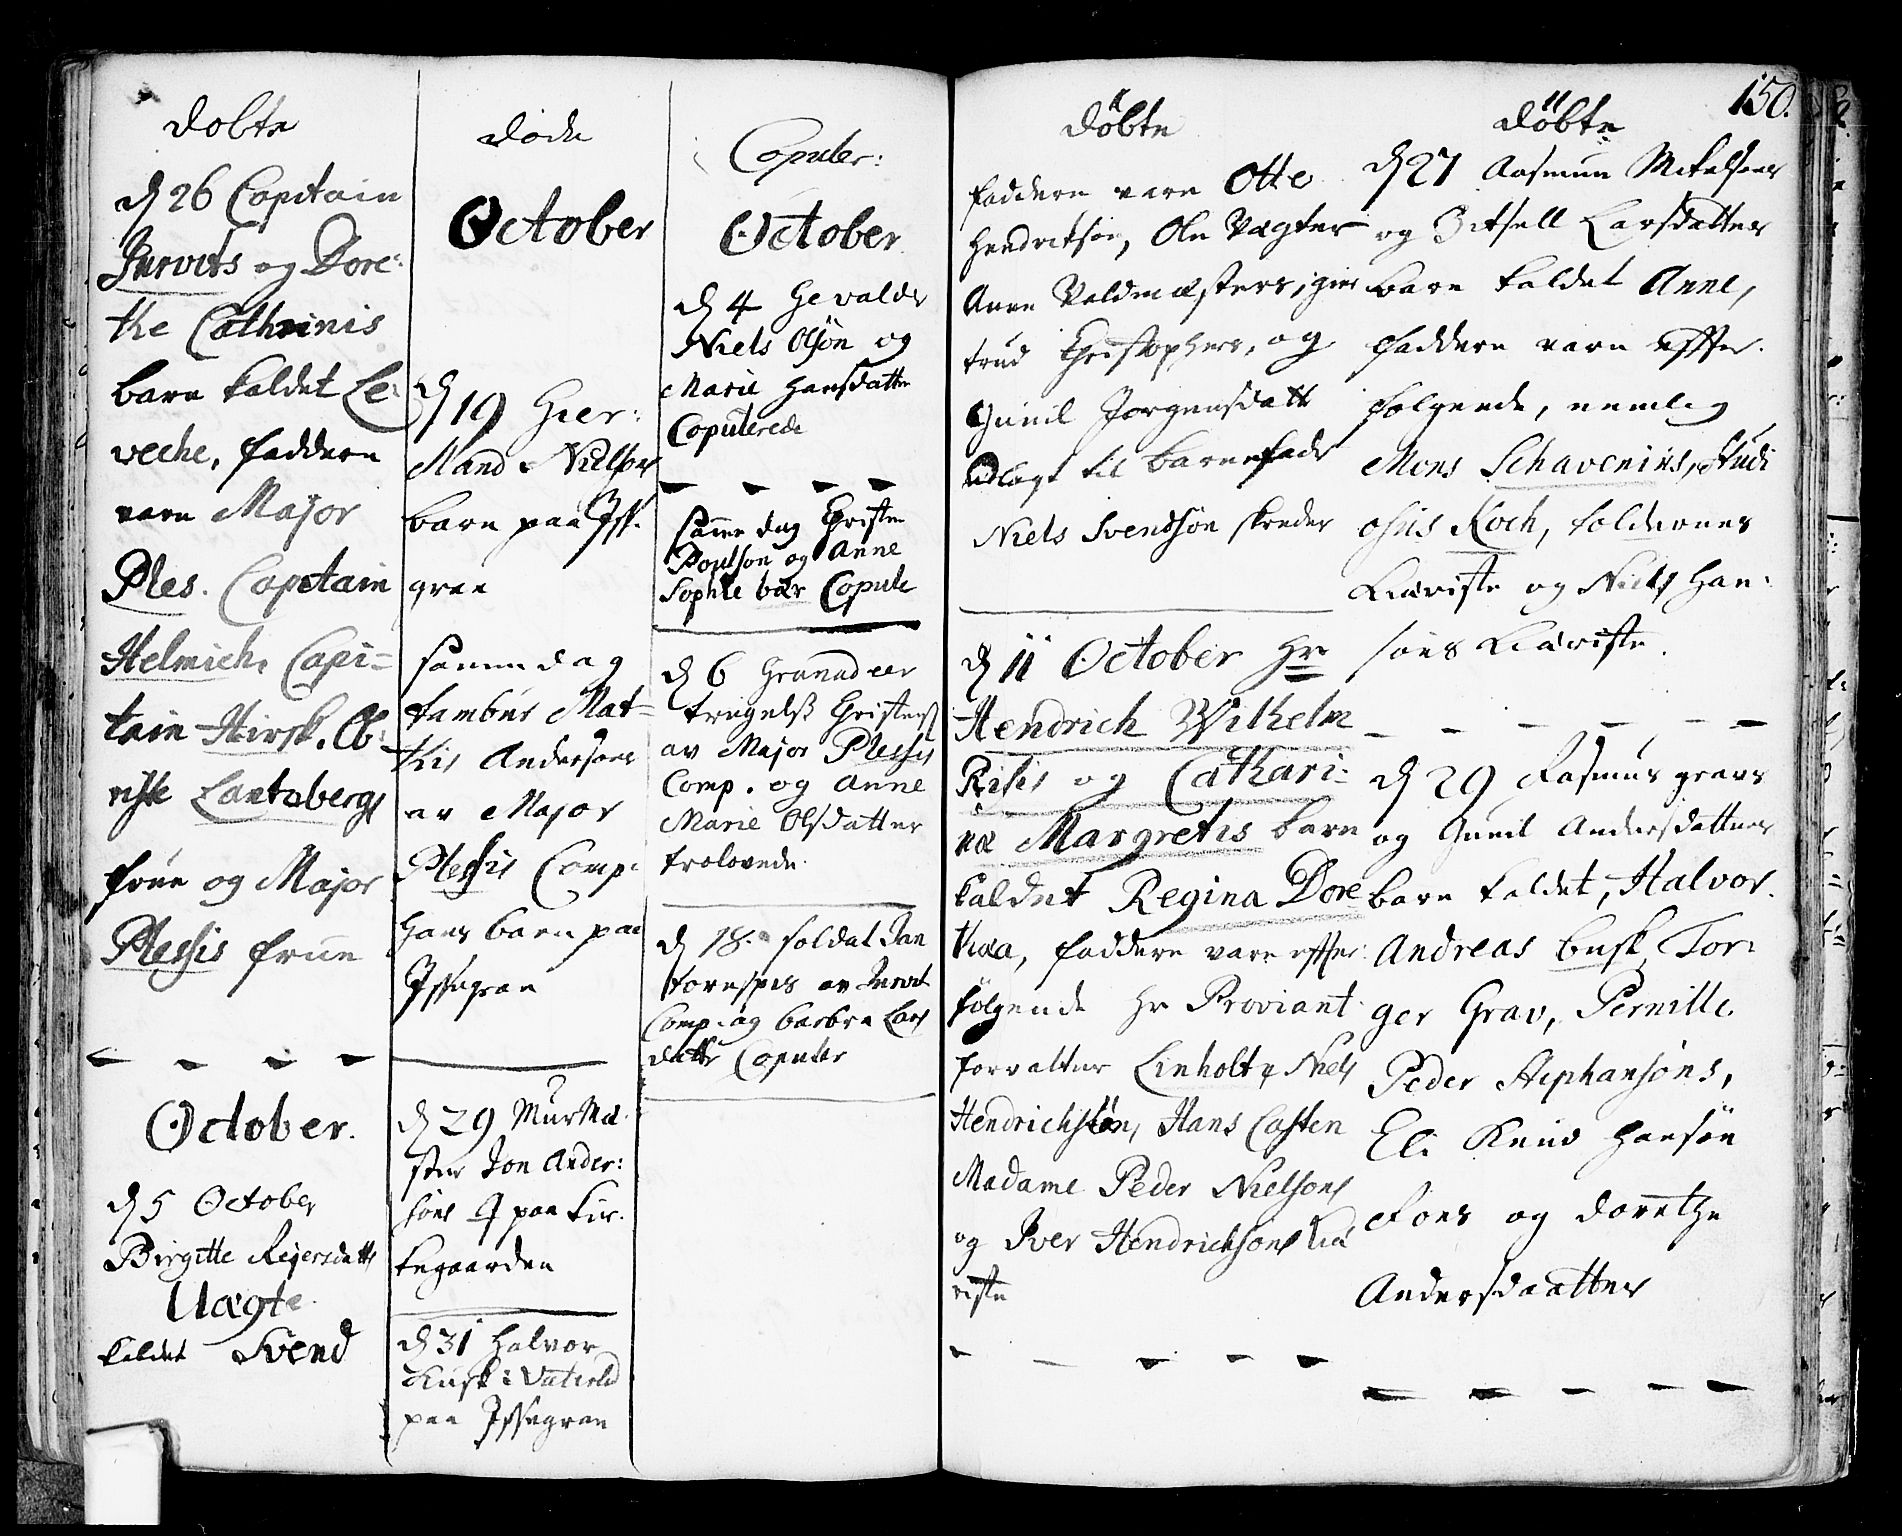 150.
Døbte
d 26 Capitain
Jurvits og Dore:
the Cathrinis
barn kaldet Le:
veche, faddere
vare Major
Ples. Capitain
Helmich, Capi=
tain Hirsk. Ob:
riste Lantsbergs
frue og Major
Plessis frue
October.
d 5 October
Birgitte Rejersdattr
Uægte
kaldet Svend
Døde
October
d 19 Hier:
Mand Nielsøns
barn paa Iss.
gran
samme dag
tambur Mat=
this Andersøns
av Major
Plessis Comp.
hans barn paa
Issegran
d 29 MurMæ.
ster Jon Ander:
søns paa kir.
kegaarden
d 31 Halvor
Kusk i Vaterld
paa Issegran
Copuler:
October
d 4 Gevalder
Niels Olsøn og
Marie Hansdatter
Copulerede
samme dag Christen
Poulsøn og Anne
Sophie bær Copule
d 6 Granadeer
Christens
av Major Plessis
Comp. og Anne
Marie Olsdatter
trolovede.
d 18. Soldat Jan
av Jurvit
Comp. og Barbra Lars
dattr Copuler
Døbte
faddere vare Otte
Hendrichsøn, Ole Vægter
Anne Valdmæsters, gier
trud Christophers, og
Gunil Jørgensdatt
udlagt til barnefadr
Niels Svendsøn skreder
d 11 October Hr
Hendrich Wilhelm
Risis og Cathari:
næ Margretis barn
kaldet Regina Dore
thæa, faddere vare effter
følgende Hr Proviant
forvalter Linholt, Niels
Hendrichsøn, Hans Casten
Madame Peder Nielsøns
og Iver Hendrichsøns Kiæ
riste
Døbte
d 27 Aasmun Mikelsøns
og Bitsell Larsdatters
barn kaldet Anne,
faddere vare effter.
følgende, nemlig
Mons Schavenius, Studi
osus Koch, tolderens
Kiæriste og Niels Han:
søns Kiæriste.
d 29 Rasmus gravs
og Gunil Andersdatters
barn kaldet, Halvor.
Andreas busk, Tor:
ger Grav, Pernille
Peder Stephansøns,
Eli Knud Hansøn
Føns og Dorethe
Andersdaatter